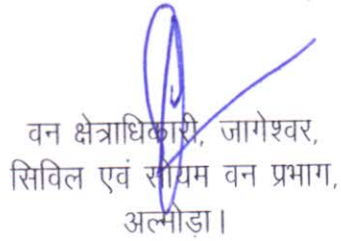 वन क्षेत्राधिकारी, जागेश्वर,
सिविल एवं सोयम वन प्रभाग,
अल्मोड़ा।